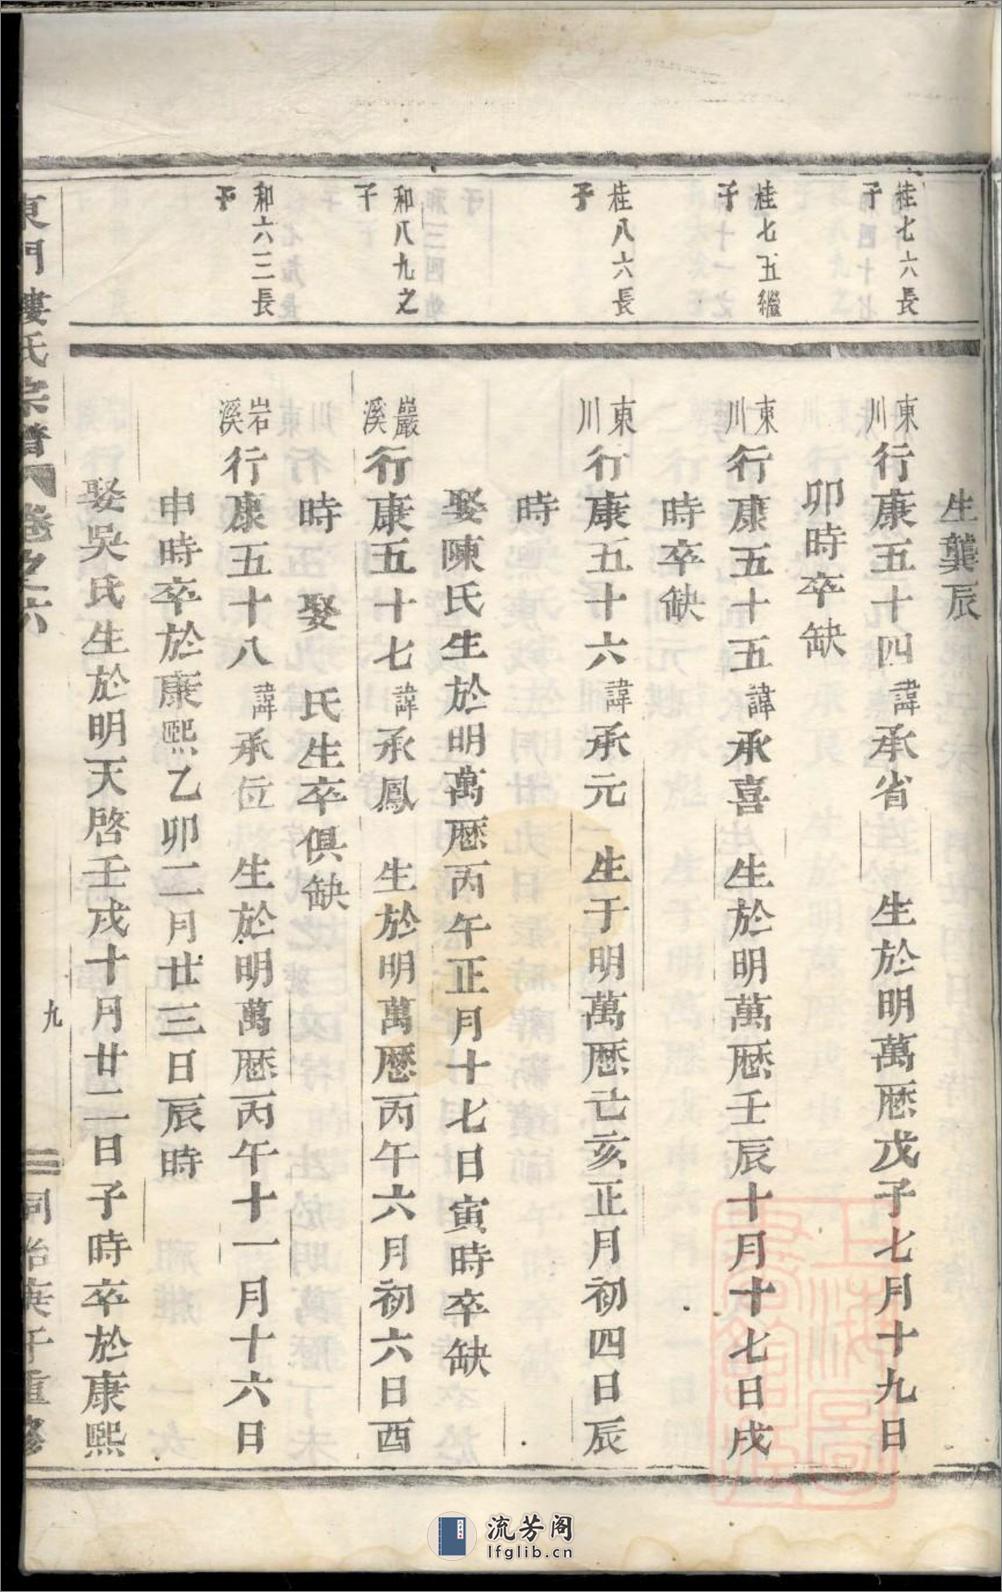 桂七六長子
桂七五繼子
桂八六長子
和八九之子
和六三長子
生龔辰
東川行康五十四諱承省 生於明萬歷戊子七月十九日
卯時卒缺
東川行康五十五諱承喜 生於明萬歷壬辰十月十七日戌
時卒缺
東川行康五十六諱承元 生于明萬歷己亥正月初四日辰
時
娶陳氏生於明萬歷丙午正月十七日寅時卒缺
巖溪行康五十七諱承鳳 生於明萬歷丙午六月初六日酉
時 娶 氏生卒俱缺
岩溪行康五十八諱承位 生於明萬歷丙午十一月十六日
申時卒於康熙乙卯二月廿三日辰時
娶吳氏生於明天啓壬戌十月廿二日子時卒於康熙
東門 婁氏宗譜 卷之六
九
同治庚午重修
流芳阁
lfglib.cn